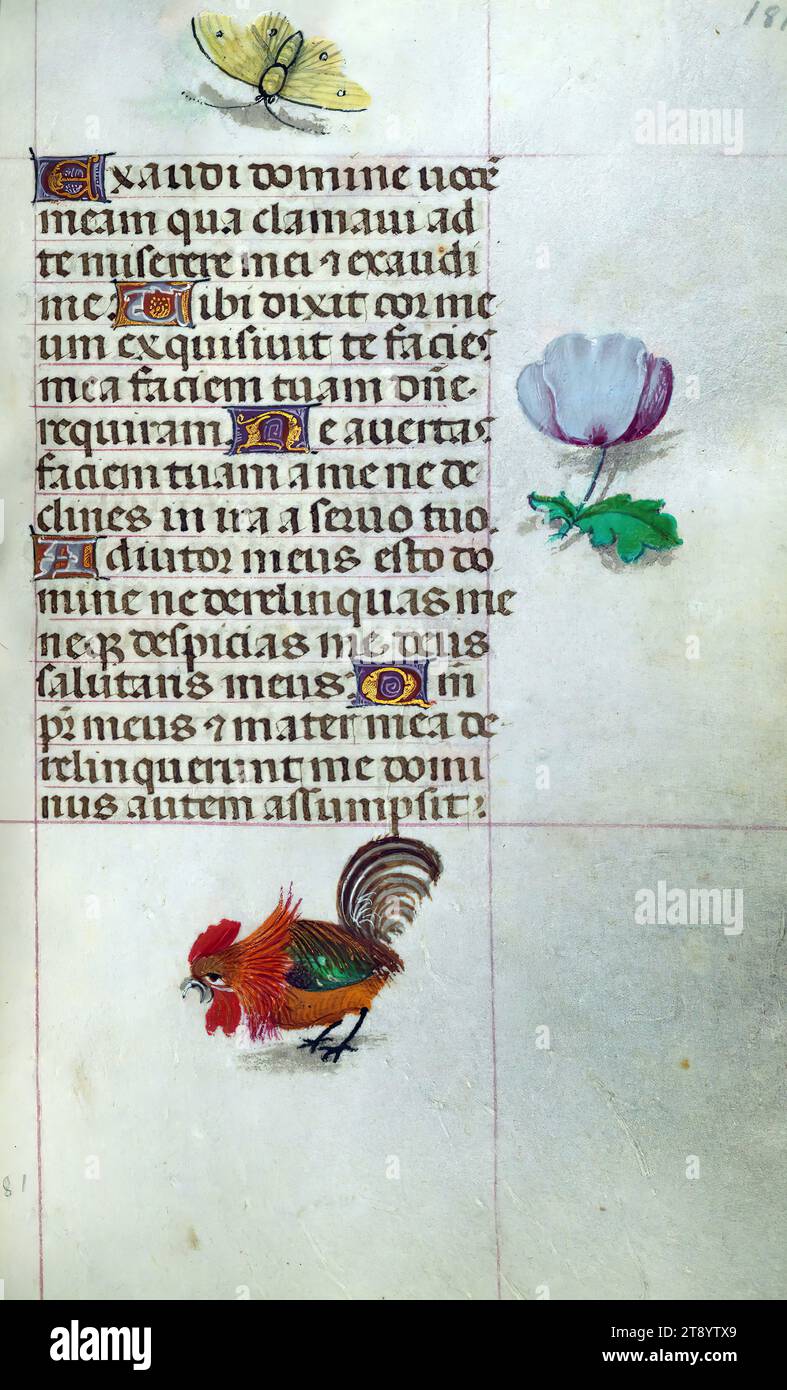 181
Exaudi domine uocē
meam qua clamaui ad
te miserere mei ⁊ exaudi
me. Tibi dixit cor me
um exquisiuit te facies
mea faciem tuam dñe
requiram. Ne auertas
faciem tuam a me ne de
clines in ira a seruo tuo.
Adiutor meus esto do
mine ne derelinquas me
neqꝫ despicias me deus
salutaris meus. Qm̄
pr̄ meus ⁊ mater mea de
relinquerunt me domi
nus autem assumpsit
81
alamy
alamy
a
a
a
alamy
Image ID: 2T8YTX9
www.alamy.com